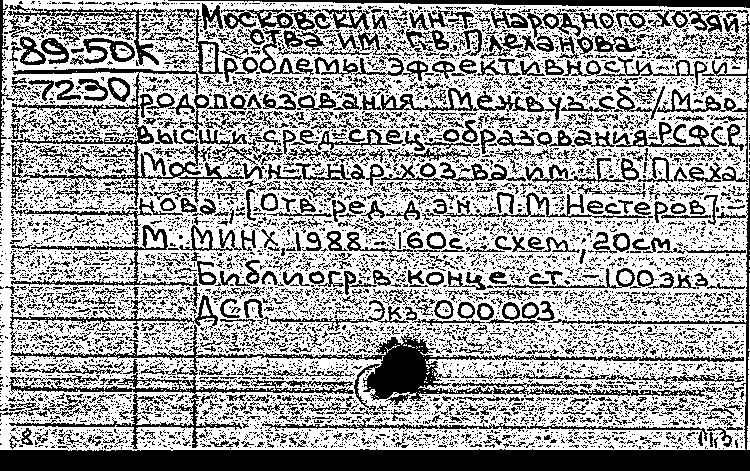 Московский ин-т народного хозяй
ства им. Г.В. Плеханова
89-50К
7230
Проблемы эффективности при-
родопользования. Межвуз сб / М-во
высш и сред спец образования РСФСР,
Моск ин-т нар. хоз-ва им. Г.В. Плеха
нова, [Отв ред д.э.н. П.М Нестеров]. -
М.: МИНХ, 1988 - 160с. : схем ; 20см.
Библиогр. в конце ст. - 100 экз
ДСП Экз 000003
8